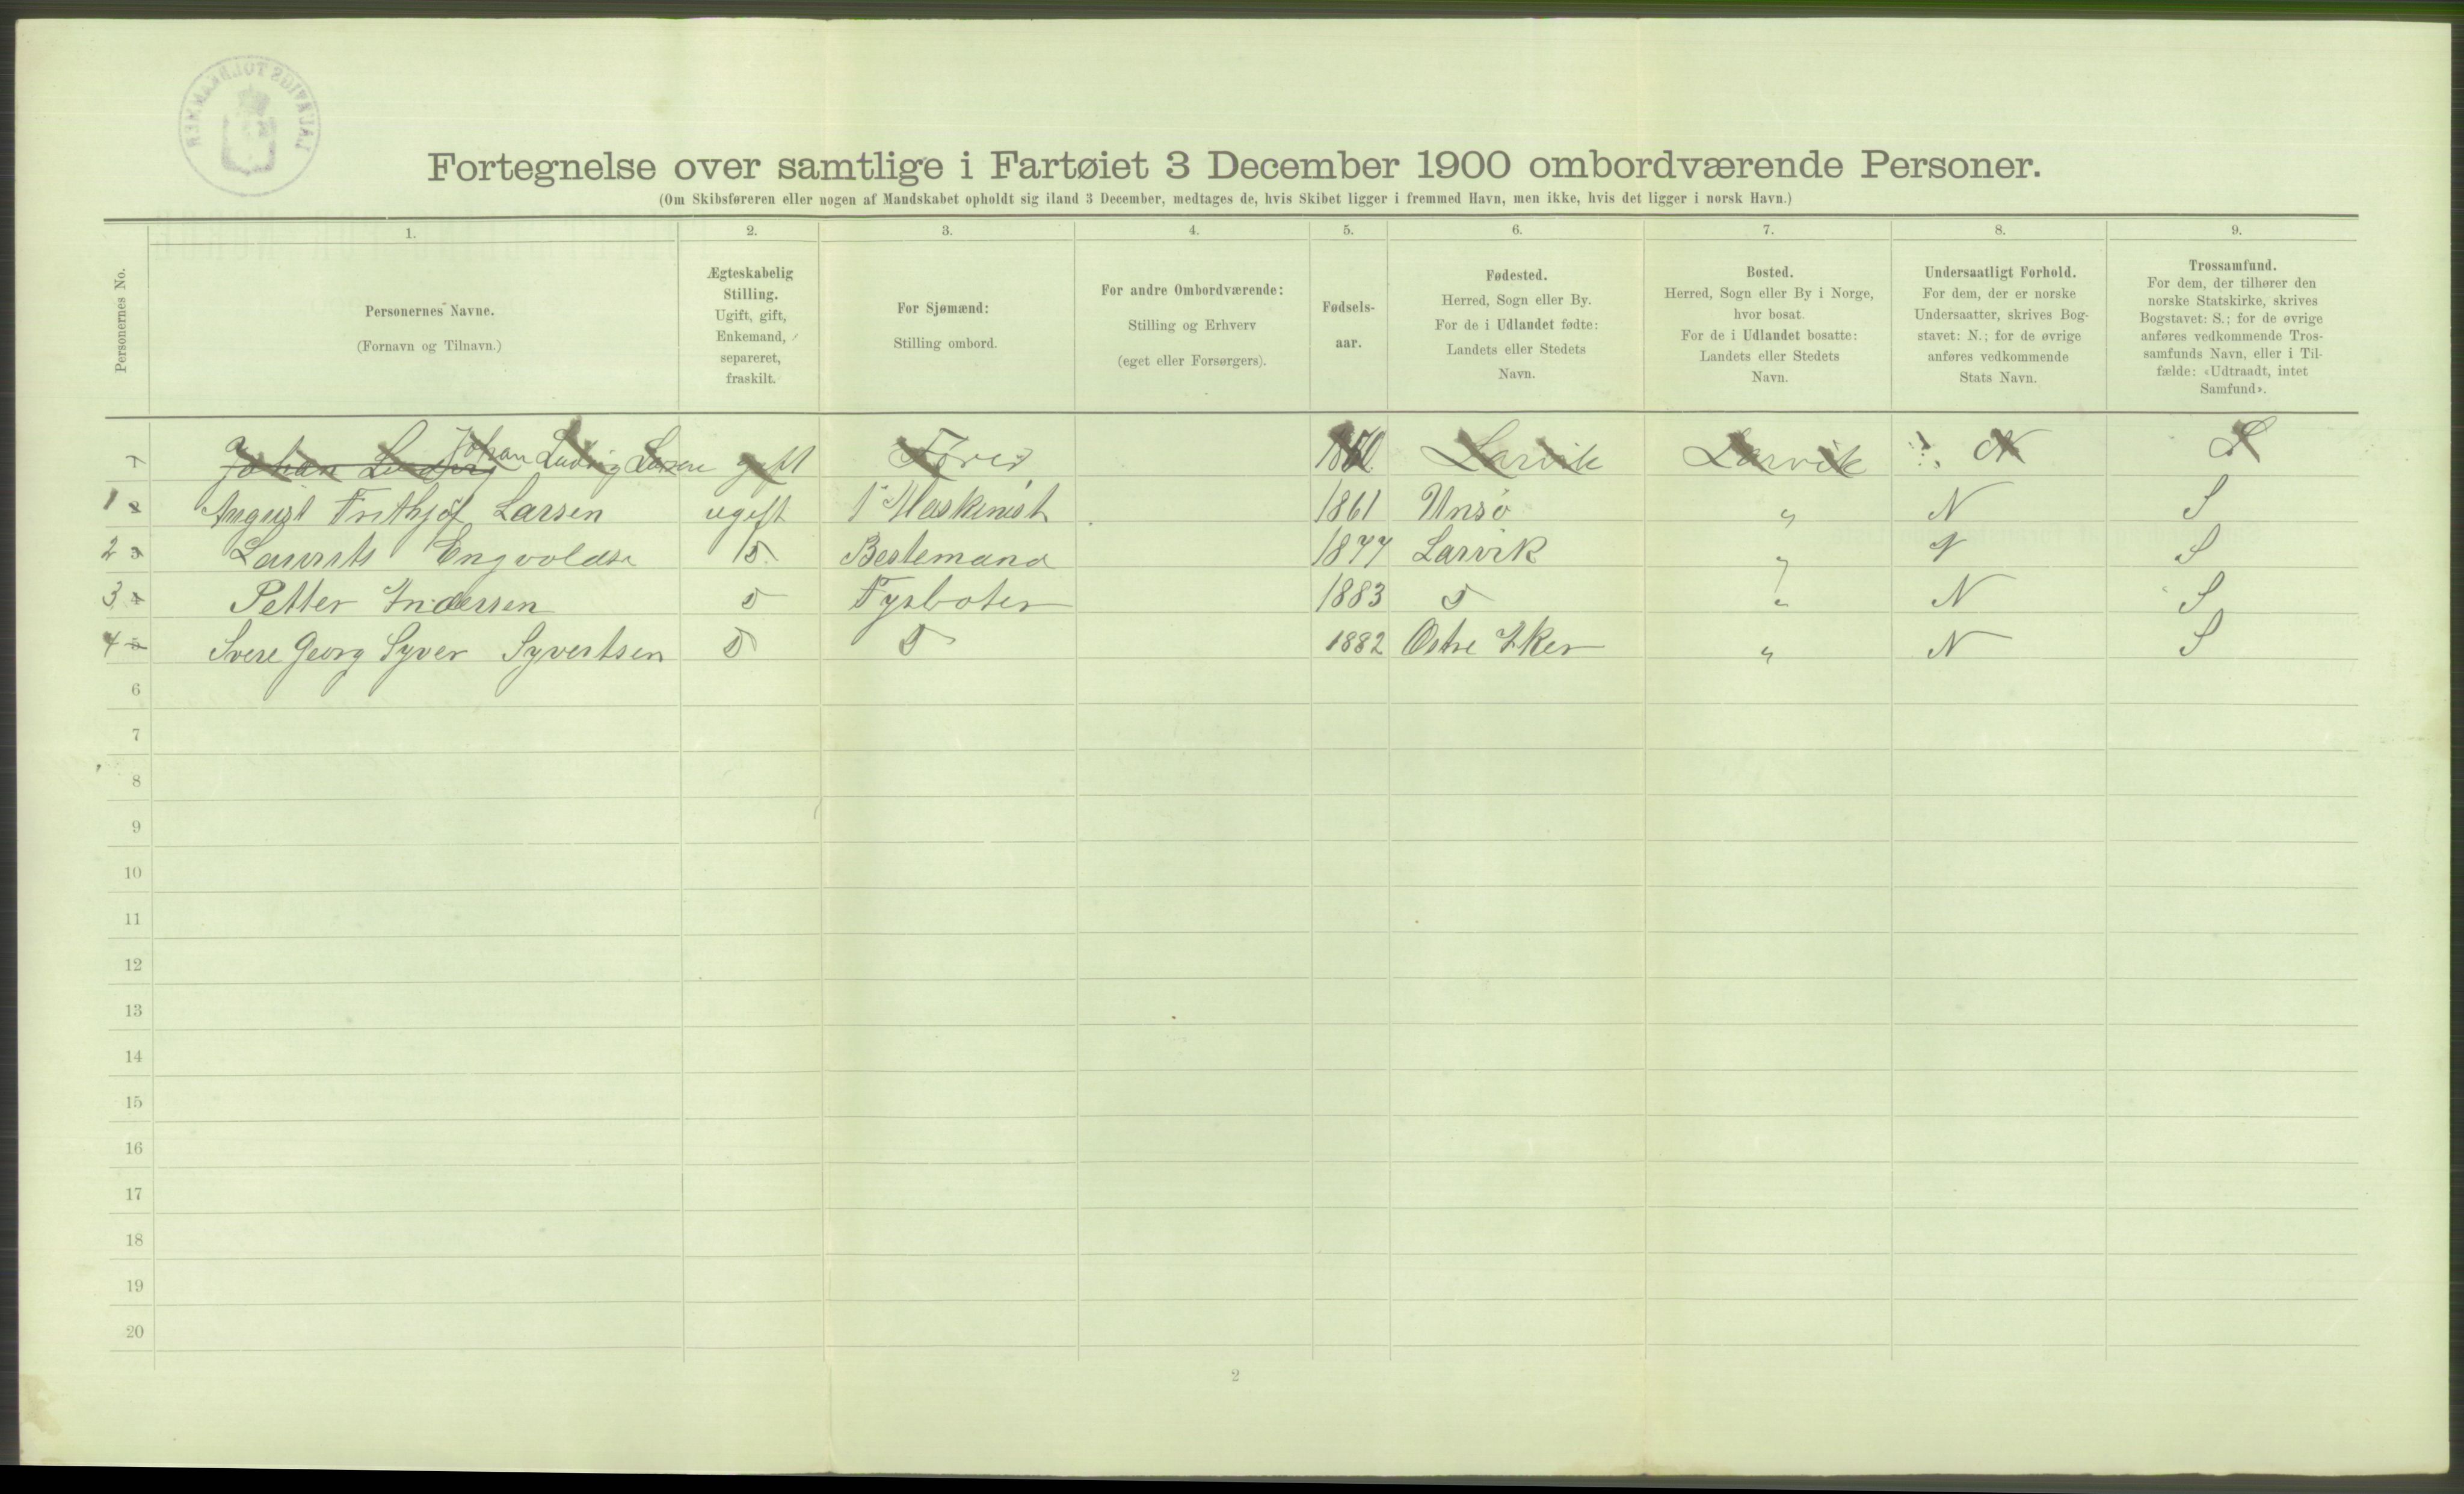 LAURVIGS TOLDKAMMER
Fortegnelse over samtlige i Fartøiet 3 December 1900 ombordværende Personer.
(Om Skibsføreren eller nogen af Mandskabet opholdt sig iland 3 December, medtages de, hvis Skibet ligger i fremmed Havn, men ikke, hvis det ligger i norsk Havn.)
1. 2. 3. 4. 5. 6. 7. 8. 9.
Personernes No.
Personernes Navne.
(Fornavn og Tilnavn.)
Ægteskabelig
Stilling.
Ugift, gift,
Enkemand,
separeret,
fraskilt.
For Sjømænd:
Stilling ombord.
For andre Ombordværende:
Stilling og Erhverv
(eget eller Forsørgers).
Fødsels-
aar.
Fødested.
Herred, Sogn eller By.
For de i Udlandet fødte:
Landets eller Stedets
Navn.
Bosted.
Herred, Sogn eller By i Norge,
hvor bosat.
For de i Udlandet bosatte:
Landets eller Stedets
Navn.
Undersaatligt Forhold.
For dem, der er norske
Undersaatter, skrives Bog-
stavet: N.; for de øvrige
anføres vedkommende
Stats Navn.
Trossamfund.
For dem, der tilhører den
norske Statskirke, skrives
Bogstavet: S.; for de øvrige
anføres vedkommende Tros-
samfunds Navn, eller i Til-
fælde: «Udtraadt, intet
Samfund».
1 Johan Ludvig Johan Ludvig Larsen gift Fører Larvik Larvik N S
1 2 August Frithjof Larsen ugift 1ste Maskinist 1861 Onsø " N S
2 3 Laurits Engvoldse D. Bestemand 1877 Larvik " N S
3 4 Petter Andersen D Fyrbøter 1883 D " N S
4 5 Svere Georg Syver Syvertsen D D 1882 Østre Aker " N S
6
7
8
9
10
11
12
13
14
15
16
17
18
19
20
2